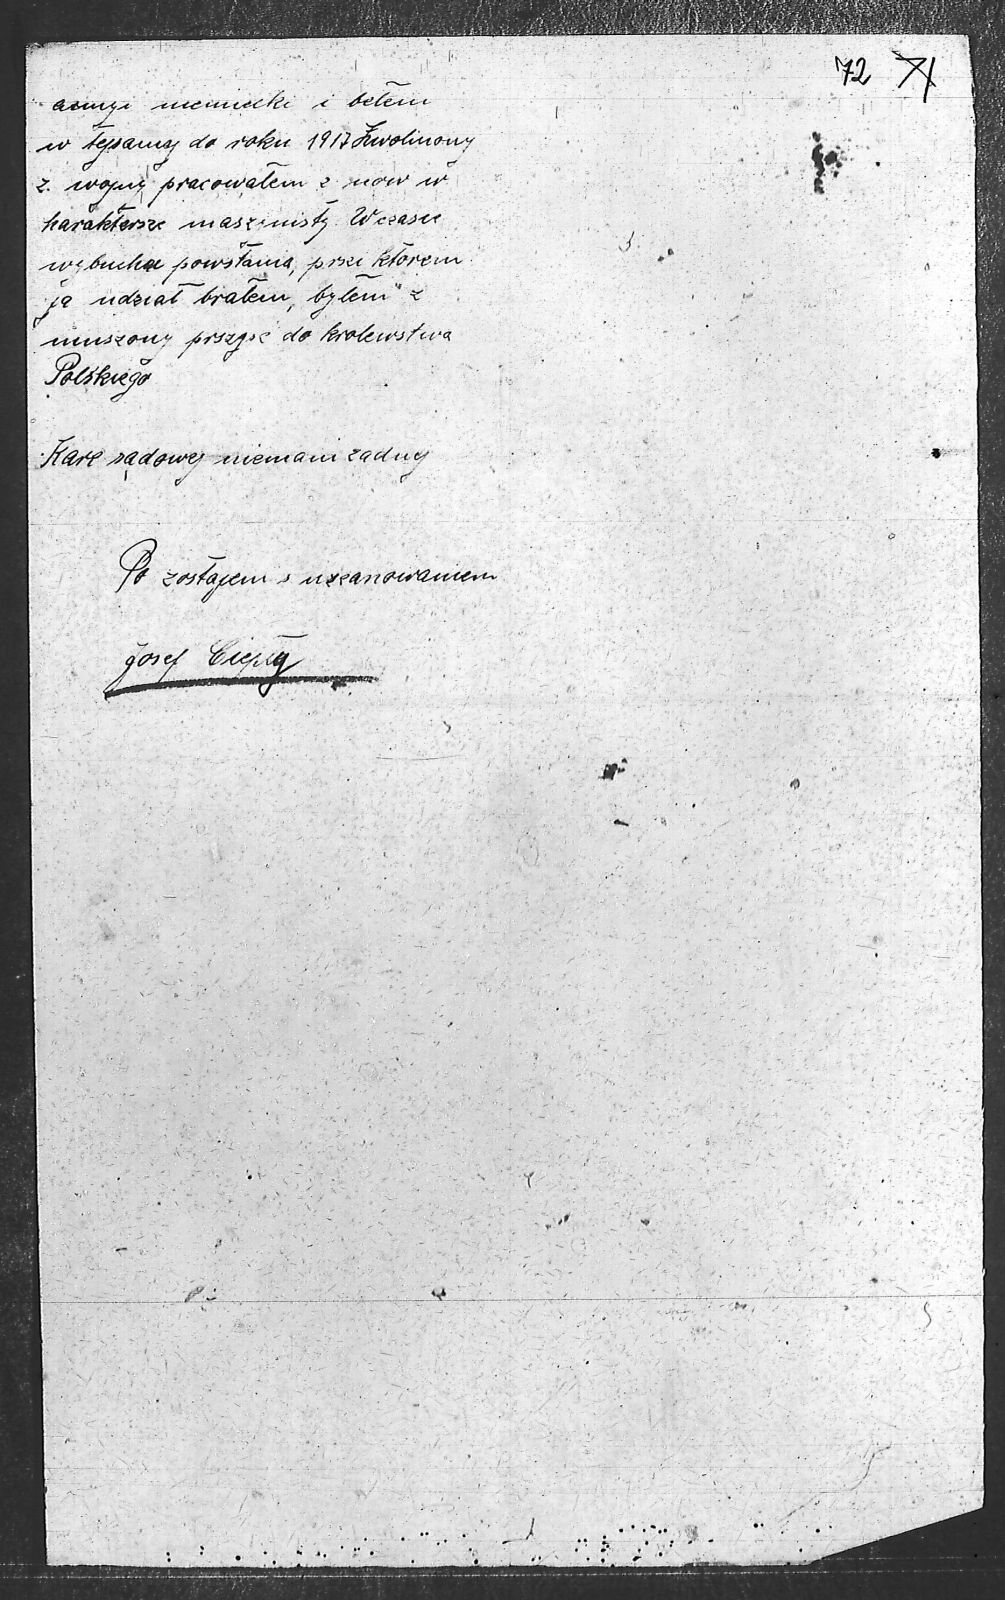 72 71
armyi niemiecki i bełem
w tysamy do roku 1917 Zwolniony
z wojny pracowałem z now w
harakterze maszynisty. W czasie
wybucha powstania, prze którem
ja udział brałem, byłem z
muszony przyjść do krolewstwa
Polskiego
Kare sądowej niemam żadny
Po zostajem s uszanowaniem
Josef